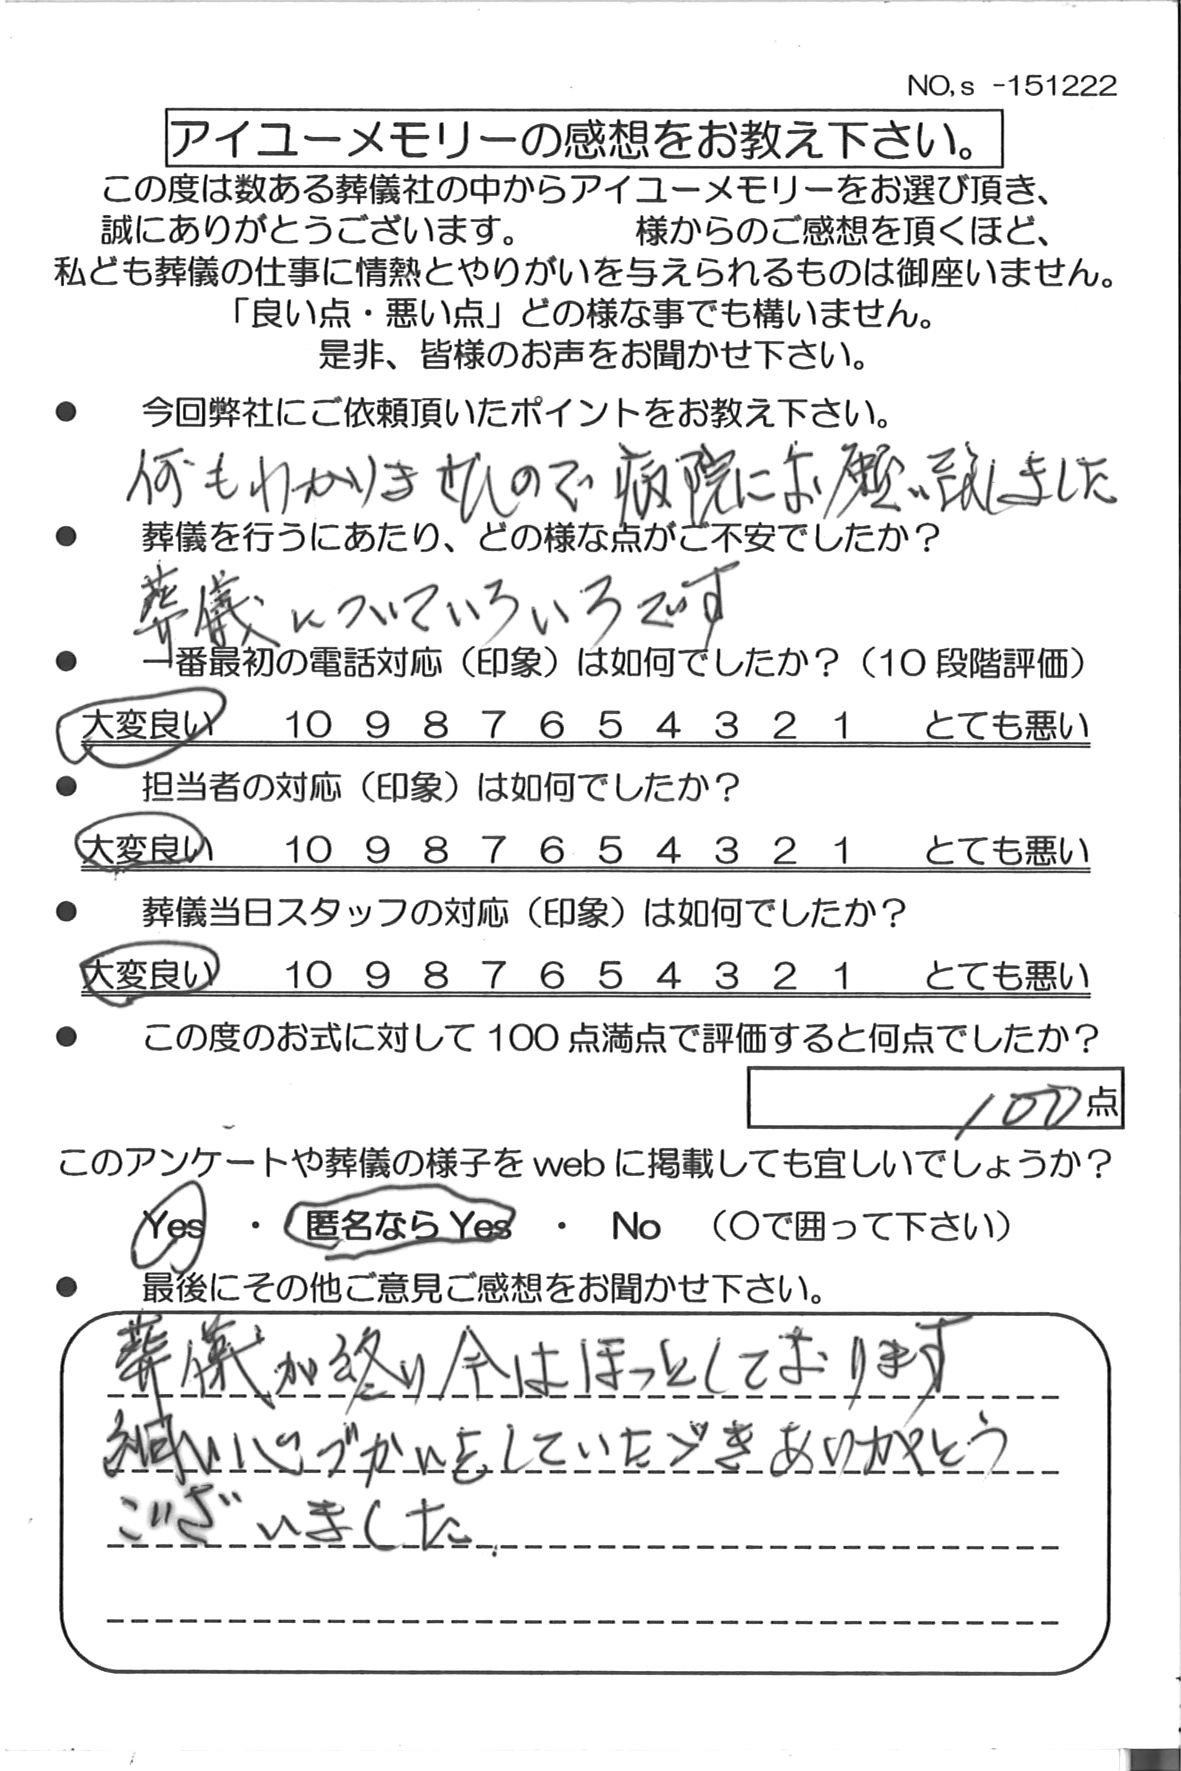 NO,s -151222
アイユーメモリーの感想をお教え下さい。
この度は数ある葬儀社の中からアイユーメモリーをお選び頂き、
誠にありがとうございます。 様からのご感想を頂くほど、
私ども葬儀の仕事に情熱とやりがいを与えられるものは御座いません。
「良い点・悪い点」どの様な事でも構いません。
是非、皆様のお声をお聞かせ下さい。
● 今回弊社にご依頼頂いたポイントをお教え下さい。
何もわかりませんので病院にお願い致しました
● 葬儀を行うにあたり、どの様な点がご不安でしたか？
葬儀についていろいろです
● 一番最初の電話対応（印象）は如何でしたか？（10 段階評価）
大変良い 10 9 8 7 6 5 4 3 2 1 とても悪い
● 担当者の対応（印象）は如何でしたか？
大変良い 10 9 8 7 6 5 4 3 2 1 とても悪い
● 葬儀当日スタッフの対応（印象）は如何でしたか？
大変良い 10 9 8 7 6 5 4 3 2 1 とても悪い
● この度のお式に対して 100 点満点で評価すると何点でしたか？
100点
このアンケートや葬儀の様子を web に掲載しても宜しいでしょうか？
Yes ・ 匿名なら Yes ・ No （〇で囲って下さい）
● 最後にその他ご意見ご感想をお聞かせ下さい。
葬儀が終り今はほっとしております
細い心づかいをしていただきありがとう
ございました.